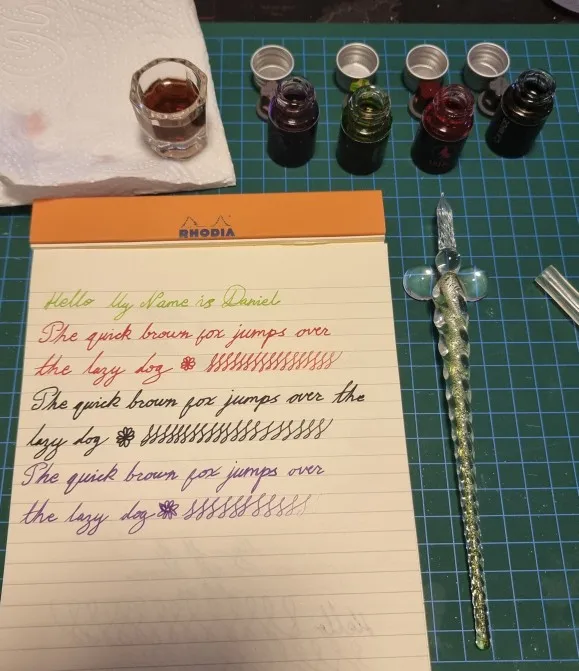 RHODIA
Hello My Name is Daniel
The quick brown fox jumps over
the lazy dog
The quick brown fox jumps over the
lazy dog
The quick brown fox jumps over
the lazy dog